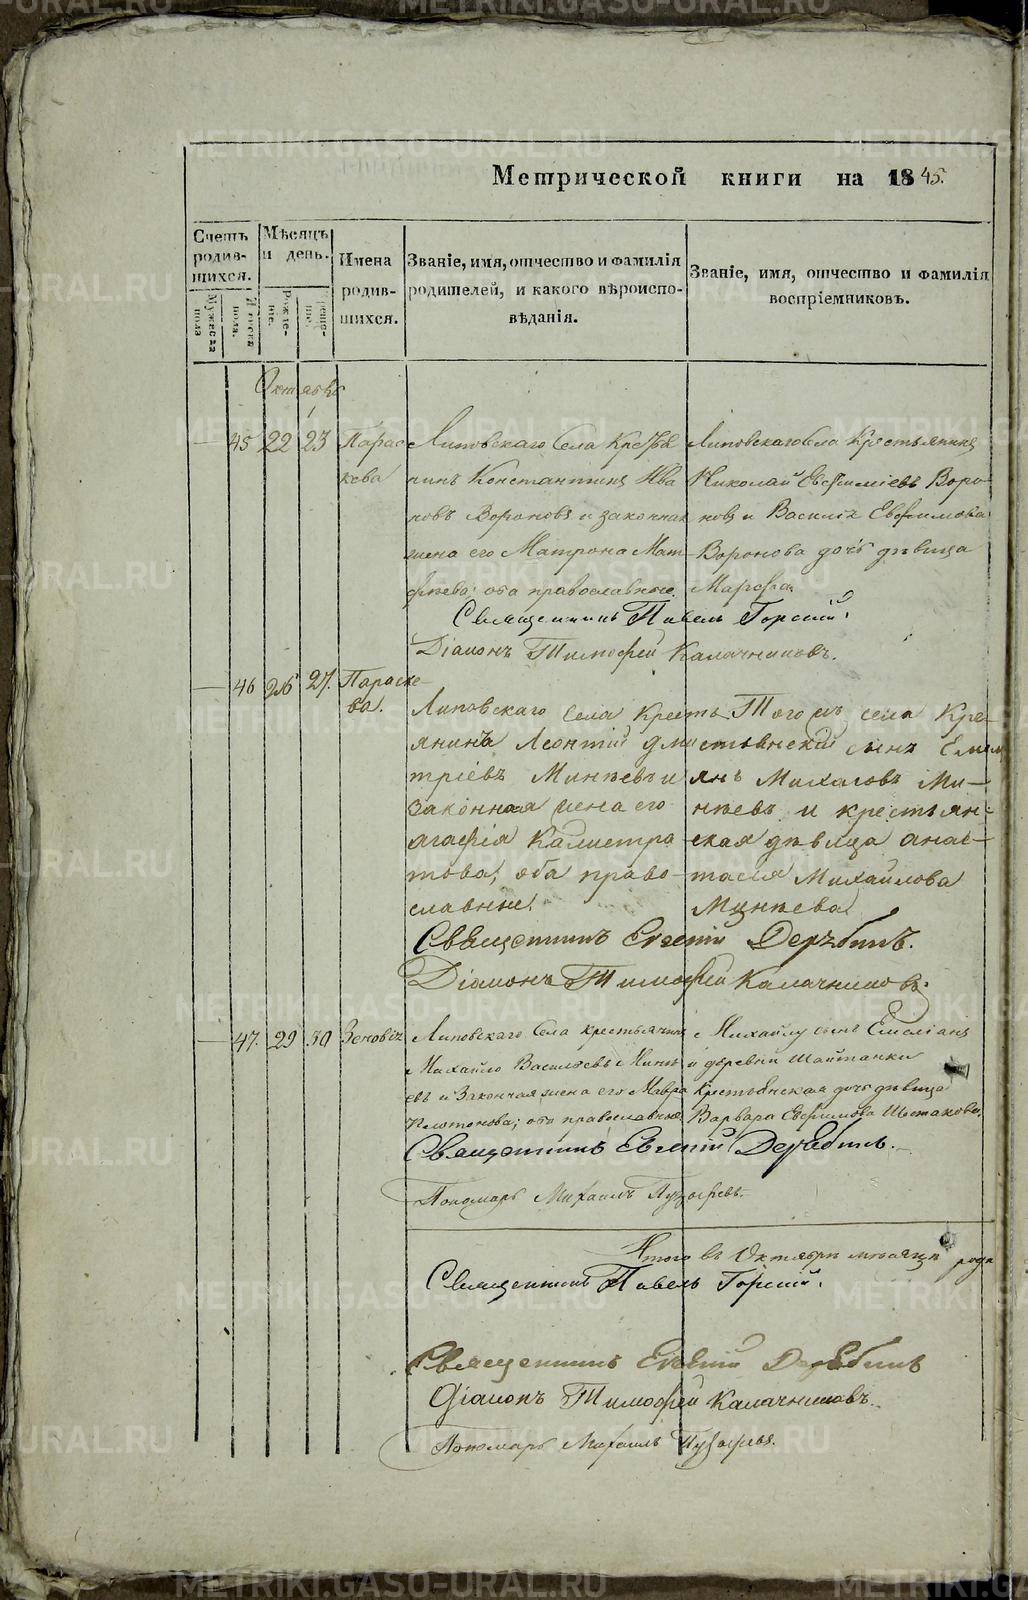 Метрической книги на 1845.
Счетъ родив-шихся.
Мужеска пола
Женска пола.
Мѣсяцъ и день.
Рожде-ніе.
Креще-ніе.
Имена родив-шихся.
Званіе, имя, отчество и фамилія родителей, и какого вѣроиспо-вѣданія.
Званіе, имя, отчество и фамилія воспріемниковъ.
Октябрь
45 22 23 Парас
кева
Липовскаго Села Кресть
нинъ Константинъ Ива
новъ Вороновъ и законная
жена его Матрона Мат
фѣева; оба православные.
Липовскаго Села Крестьянинъ
Николай Евфиміевъ Воро-
новъ и Василія Евфимова
Воронова дочь дѣвица
Марфа.
Священникъ Павелъ Горскій.
Діаконъ Тимофей Калачниковъ.
46 26 27. Параске-
ва.
Липовскаго Села Кресть
янинъ Леонтій Дми
тріевъ Минѣевъ и
законная жена его
Агафія Калистра
това, оба право-
славные.
Того жъ села Кре-
стьянскій сынъ Емел
янъ Михаловъ Ми-
нѣевъ и крестьян-
ская дѣвица Анас-
тасія Михайлова
Минѣева
Священникъ Евгеній Дерябинъ.
Діаконъ Тимофей Калачниковъ.
47. 29 30 Зеновія
Липовскаго Села крестьянинъ
Михайло Васильевъ Минѣ
евъ и Законная жена его Мавра
Платонова; оба православные.
Михайлу сынъ Емеліанъ
и деревни Шайтанки
Крестьянская дочь дѣвица
Варвара Евфимова Шестакова.
Священникъ Евгеній Дерябинъ.
Пономарь Михаилъ Пузыревъ.
Итого въ Октябрѣ мѣсяцѣ роди
Священникъ Павелъ Горскій.
Священникъ Евгеній Дерябинъ
Діаконъ Тимофей Калачниковъ.
Пономарь Михаилъ Пузыревъ.
METRIKI.GASO-URAL.RU